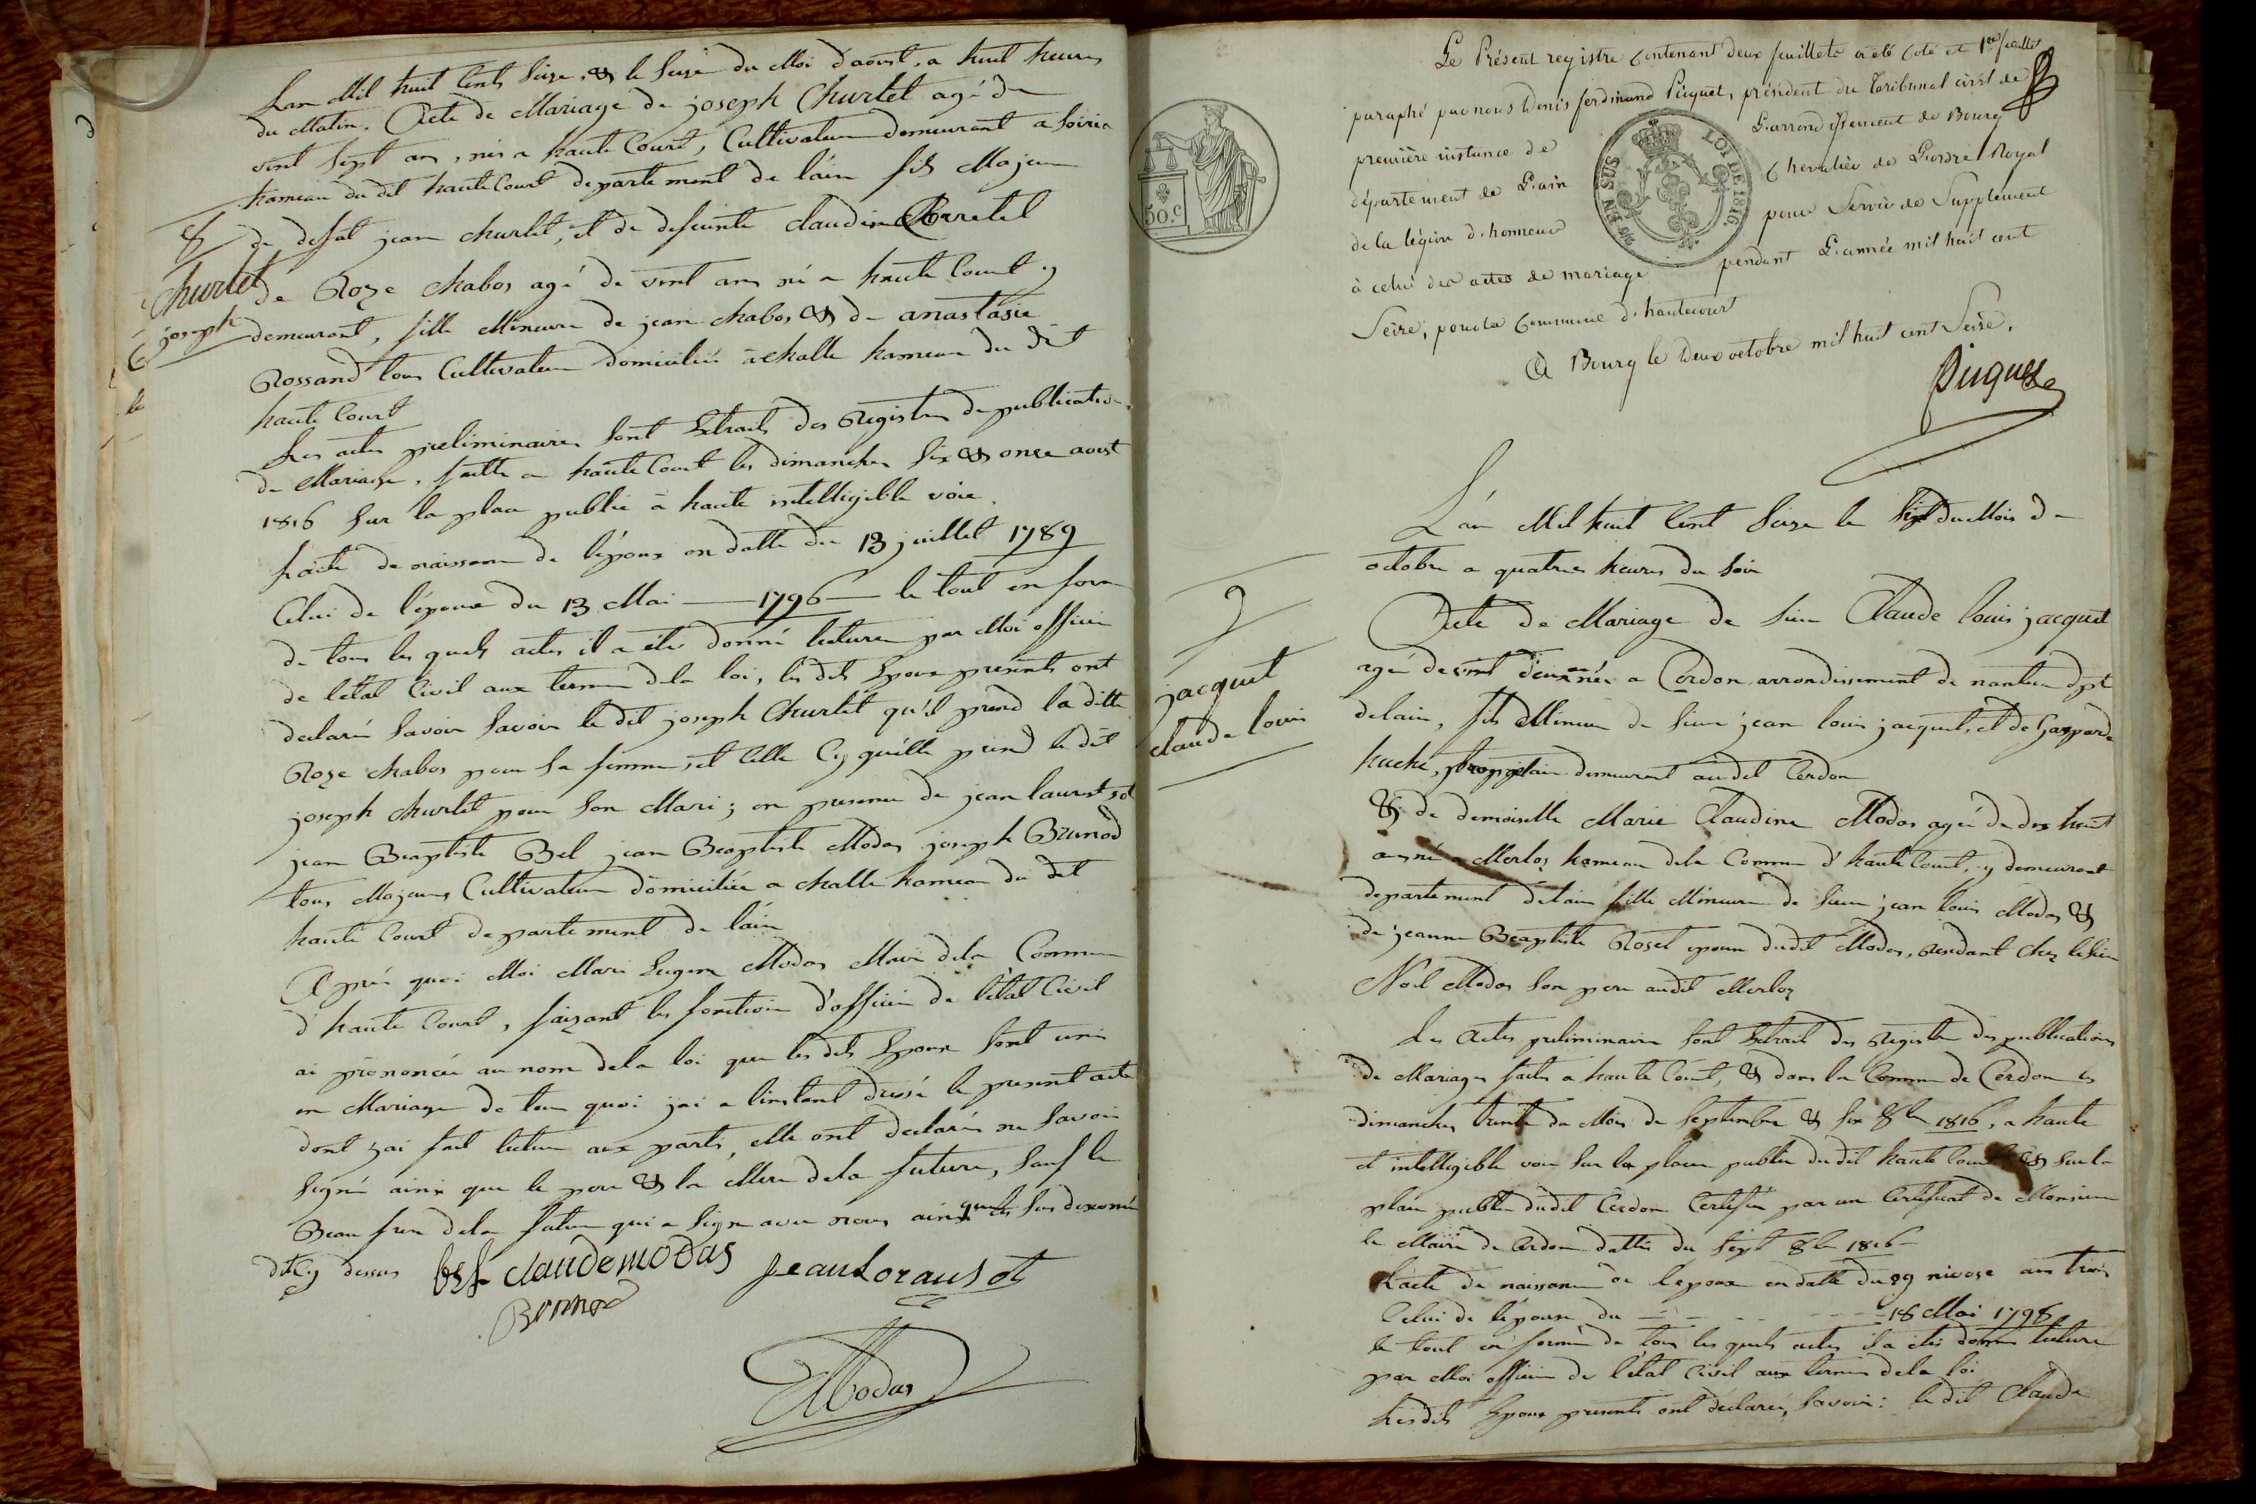 Lan Mil huit Cents Seize, & le Seize du Moi d'aoust, a huit heures
du Matin. Acte de Mariage de joseph Churlet agé de
vint Sept ans, nés a haute Court, Cultivateur demeurant a
hameau du dit haute Court departement de l'ain fils Majeur
&
de defat jean churlet, et de defeinte claudine
Churlet
joseph
de Roze chabos agé de vint ans né a haute Court y
demeurant, fille Mineure de jean chabos & de anastasie
Rossand tous Cultivateur domicilié a challe hameau du dit
haute Court
Les actes preliminaires Sont Extraits des Registres de publications
de Mariage, faitte a haute Court les dimanches Six & onze aoust
1816 Sur la place public à haute intelligible voie.
l'acte de naissance de l'époux en datte du 13 juillet 1789
Celui de l'épouse du 13 Mai 1796 le tout en forme
de tous les quels actes il a été donné lecture par Moi officier
de l'etat Civil aux termes de la loi, les dits Epoux presents ont
declarés Savoir Savoir le dit joseph Churlet qu'il prend la ditte
Roze chabos pour Sa femme, et Celle Cy qu'elle prend le dit
joseph churlet pour Son Mari; en presence de jean
jean Beaptiste Bel jean Beaptiste Modas joseph Brunod
tous Majeurs Cultivateur domicilié a challe hameau du dit
haute Court departement de l'ain
Après quoi Moi Mari Eugene Modas Maire de la Commune
d'haute Court, faizant les fonctions d'officier de l'état Civil
ai prononcé au nom de la loi que les dits Epoux Sont unis
en Mariage de tous quoi jai a linstant dressé le present acte
dont j'ai fait lecture aux parti, elle ont declarés ne Savoir
Signé ainsi que le pere & la Mere de la future, Sauf le
Beau frere de la future qui a Signé avec nous ainsi que les Sus
dits Cy dessus Bel claude modas
Brunod
Modas
Le Présent registre Contenant deux feuillets a été Coté et
paraphé par nous Denis ferdinand Picquet, président du Tribunal civil de
première instance de L'arrondissement de Bourg
département de L'ain Chevalier de L'ordre Royal
de la légion d'honneur pour Servir de Supplément
à celui des actes de mariage pendant L'année mil huit cent
Seize, pour la Commune d'hautecourt
A Bourg le Deux octobre mil huit cent Seize.
Picquet
50.c
LOI DE 1816.
L'an Mil huit Cent Seize le Sept du Mois de
octobre a quatres heures du Soir
9
Acte de Mariage de Sieur Claude louis jacquet
jacquet
claude louis
agé de vint deux né a Cerdon arrondissement de nantua dpt
delain, fils Mineur de Sieur jean louis jacquet, et de Gasparde
huche, propriétaire demeurant audit Cerdon
& de demoiselle Marie Claudine Modas agée de dix huit
ans né a Merloz hameau de la Commune d'haute Court, y demeurant
departement delain fille Mineure de Sieur jean louis Modas &
de jeanne Beaptiste Roset epoux dudit Modas, residant chez le Sieur
Noel Modas Son pere audit Merloz
Les Actes preliminaire Sont Extrait des Registre des publications
de Mariages faites a haute Court, & dans la Commune de Cerdon les
dimanches trente du Mois de Septembre & Six 8bre 1816, a haute
et intelligible voix Sur la place public du dit haute Court & Sur la
place public dudit Cerdon Certifié par un Certificat de Monsieur
le Maire de Cerdon datté du Sept 8bre 1816
L'acte de naissance de l'epoux en datte du 29 nivose an trois
Celui de l'épouse du 18 Mai 1798
le tout en forme de tous les quels actes il a été donné lecture
par Moi officier de l'état Civil aux termes de la loi
Lesdits Epoux presents ont déclaré, Savoir: le dit Claude